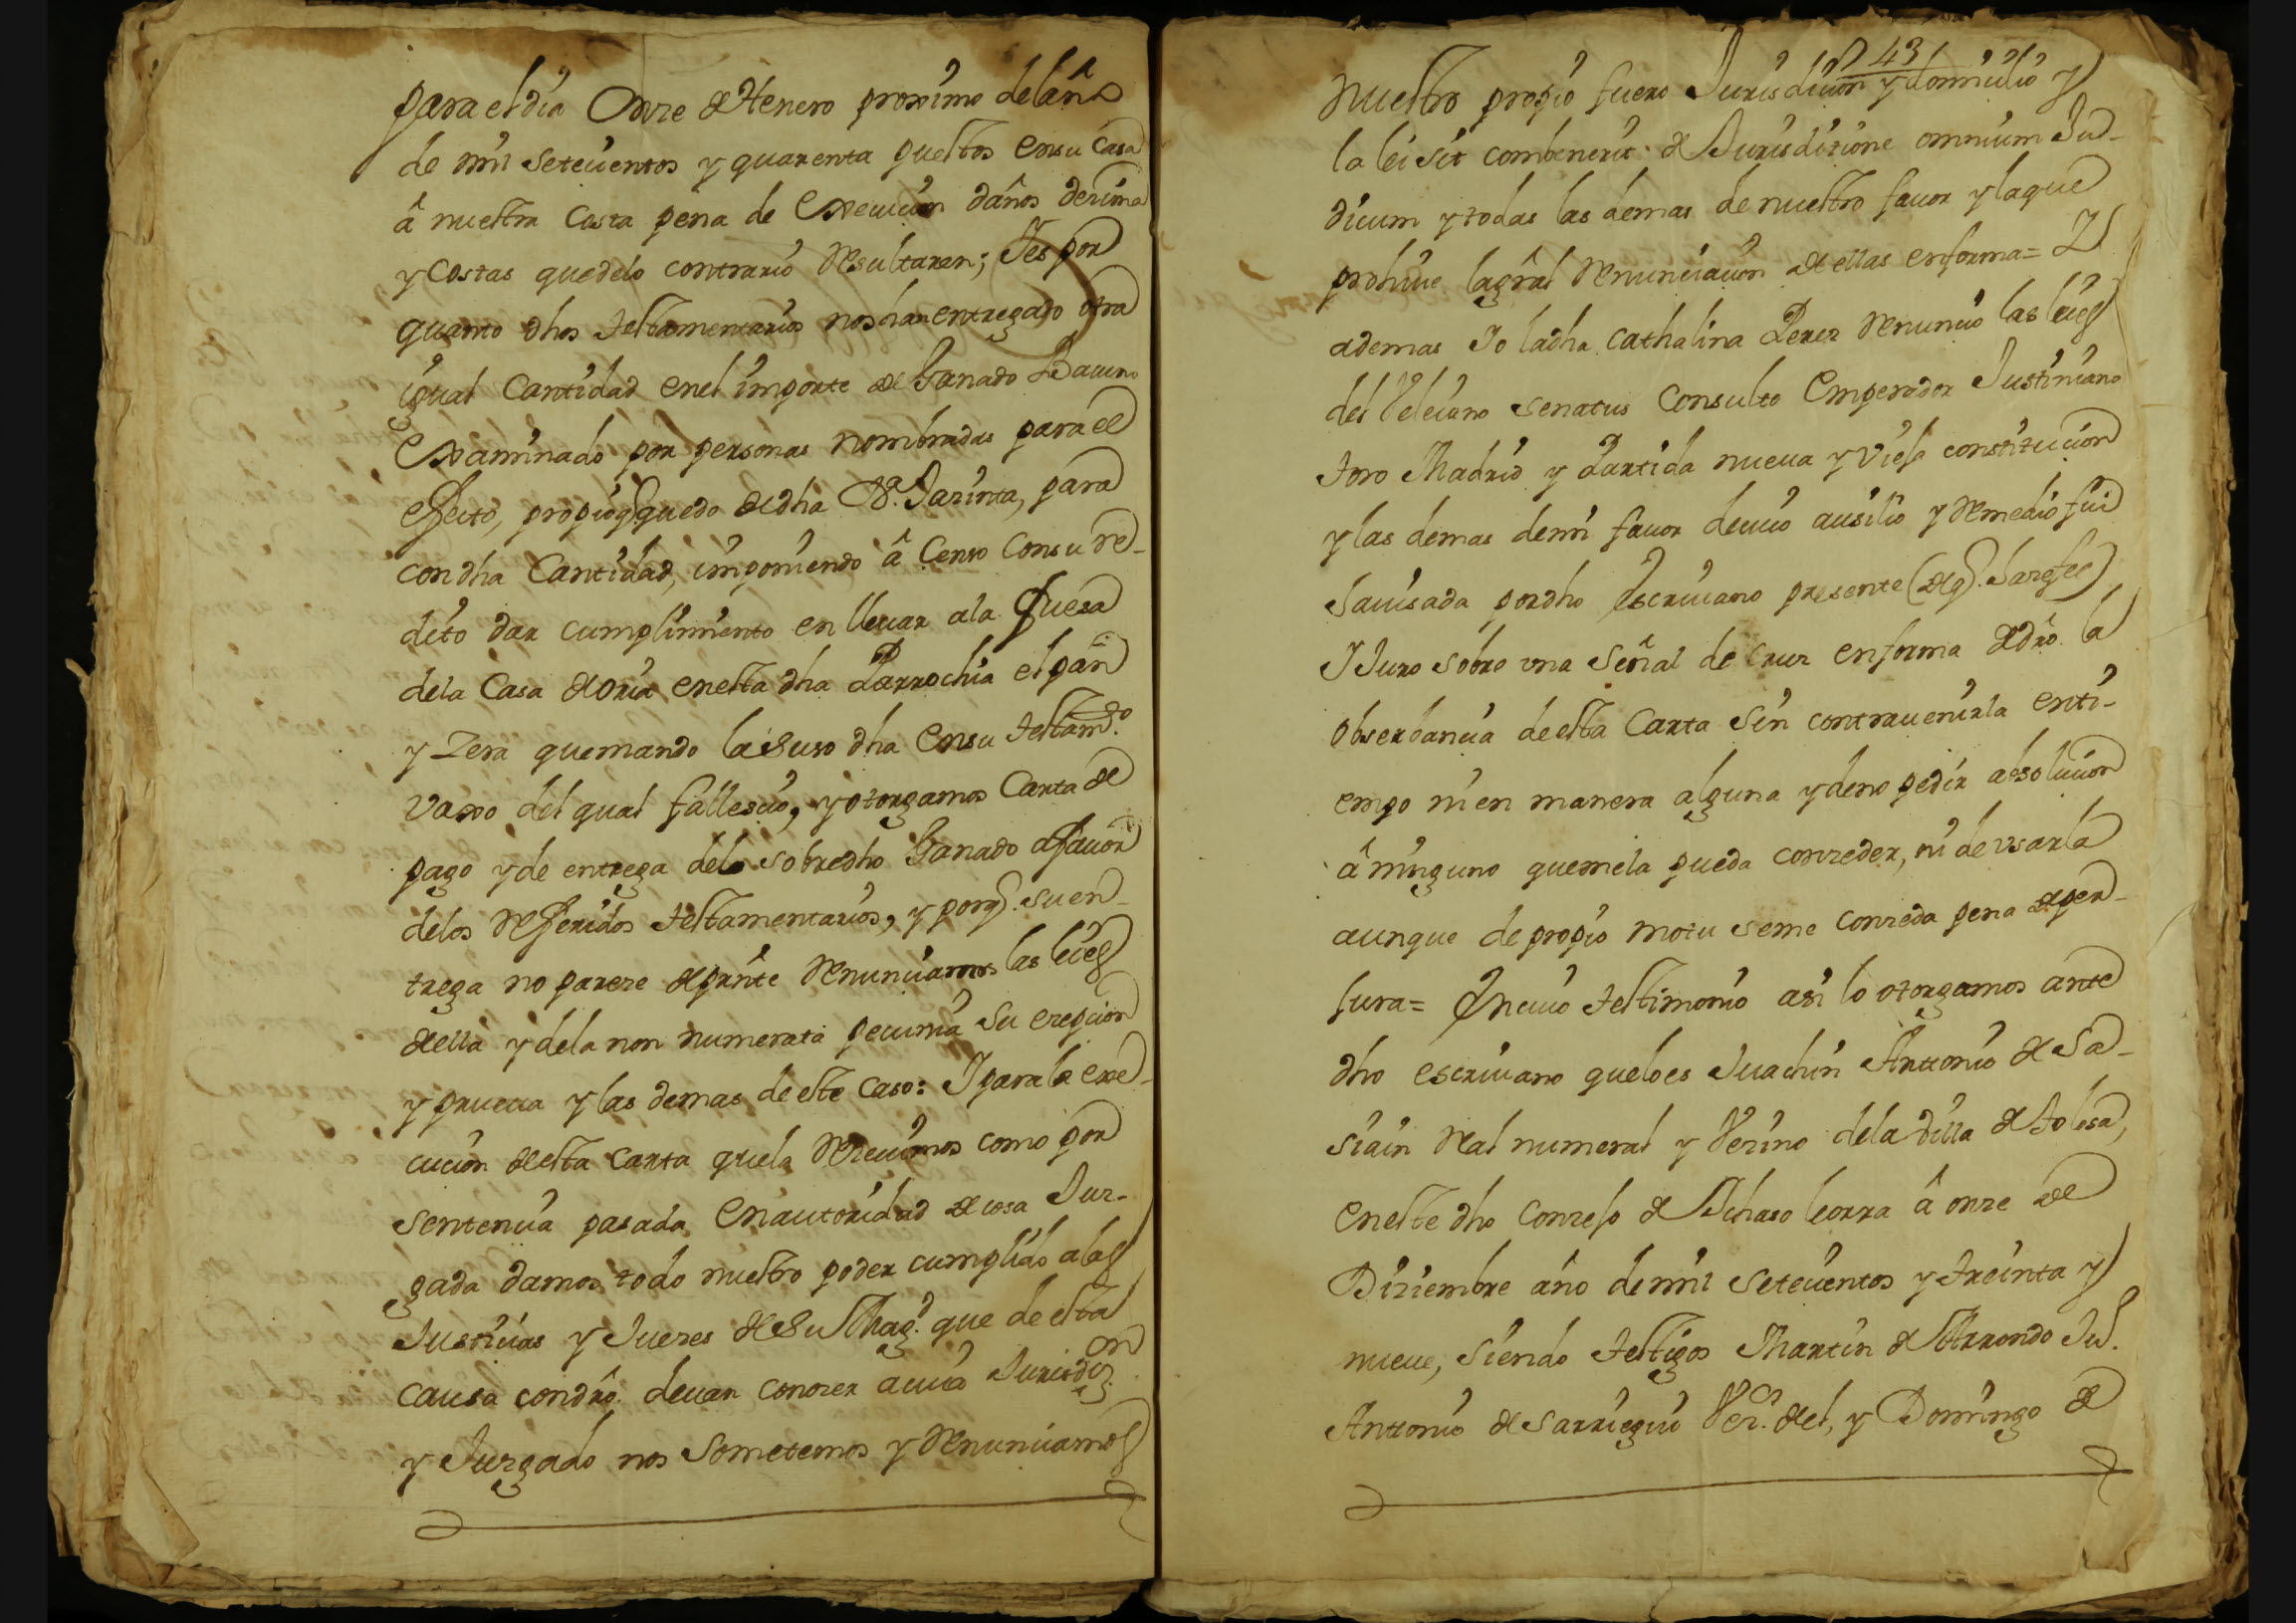 para el dia Onze de Henero proximo del año
de mil setecientos y quarenta puestos en su casa
â nuestra costa pena de execucion daños dezima
y costas que delo contrario resultaren; Y es por
quanto dhos testamentarios nos han entregado otra
igual Cantidad en el importe de Ganado Bacuno
examinado por personas nombradas para el
efecto, propio q quedo de dha Dª. Jazinta, para
con dha Cantidad, imponiendo â Censo Con su re-
dito dar cumplimiento en llevar ala fuesa
dela Casa de Oria en esta dha Parrochia el pan
y zera que mando la suso dha en su testamto.
vaxo del qual fallescio, y otorgamos Carta de
pago y de entrega delo sobredho Ganado a favor
delos referidos testamentarios, y porq. su en-
trega no pareze de prnte renunciamos las leies
della y dela non numerata pecunia su ezepcion
y prueva y las demas de este caso: Y para la exe-
cucion de esta carta que la rezevimos como por
sentencia pasada en autoridad de cosa Juz-
gada damos todo nuestro poder cumplido alas
Justicias y Juezes de Su Magd. que de esta
causa con dro. devan conozer a cuia Jurisdizon.
y Juzgado nos sometemos y renunciamos
43
nuestro propio fuero Jurisdicion y domicilio y
la lei sit combenerit de Jurisditione omnium Jud-
dicum y todas las demas de nuestro favor y la que
prohive la gral renunciacion de ellas en forma= Y
ademas Yo la dha Cathalina Perez renuncio las leies
del Veleiano senatus Consulto Emperador Justiniano
toro Madrid y Partida nueva y Vieja constitucion
y las demas de mi favor de cuio ausilio y remedio fui
savisada por dho Escrivano presente (de q. Jazefee)
Y Juro sobre una señal de cruz en forma de dro. la
observancia de esta Carta sin contravenirla enti-
empo ni en manera alguna y de no pedir absolucion
â ninguno que me la pueda conzeder, ni de usarla
aunque de propio motu se me conzeda pena de per-
jura= En cuio testimonio asi lo otorgamos ante
dho escrivano que lo es Juachin Antonio de Sa-
siain Real numeral y Vezino dela Villa de Tolosa,
en este dho Conzejo de Vichaso leorra â onze de
Diziembre año de mil setecientos y treinta y
nueve, siendo testigos Martin de Arrondo Jul.
Antonio de Sarriegui Vezos. del, y Domingo de